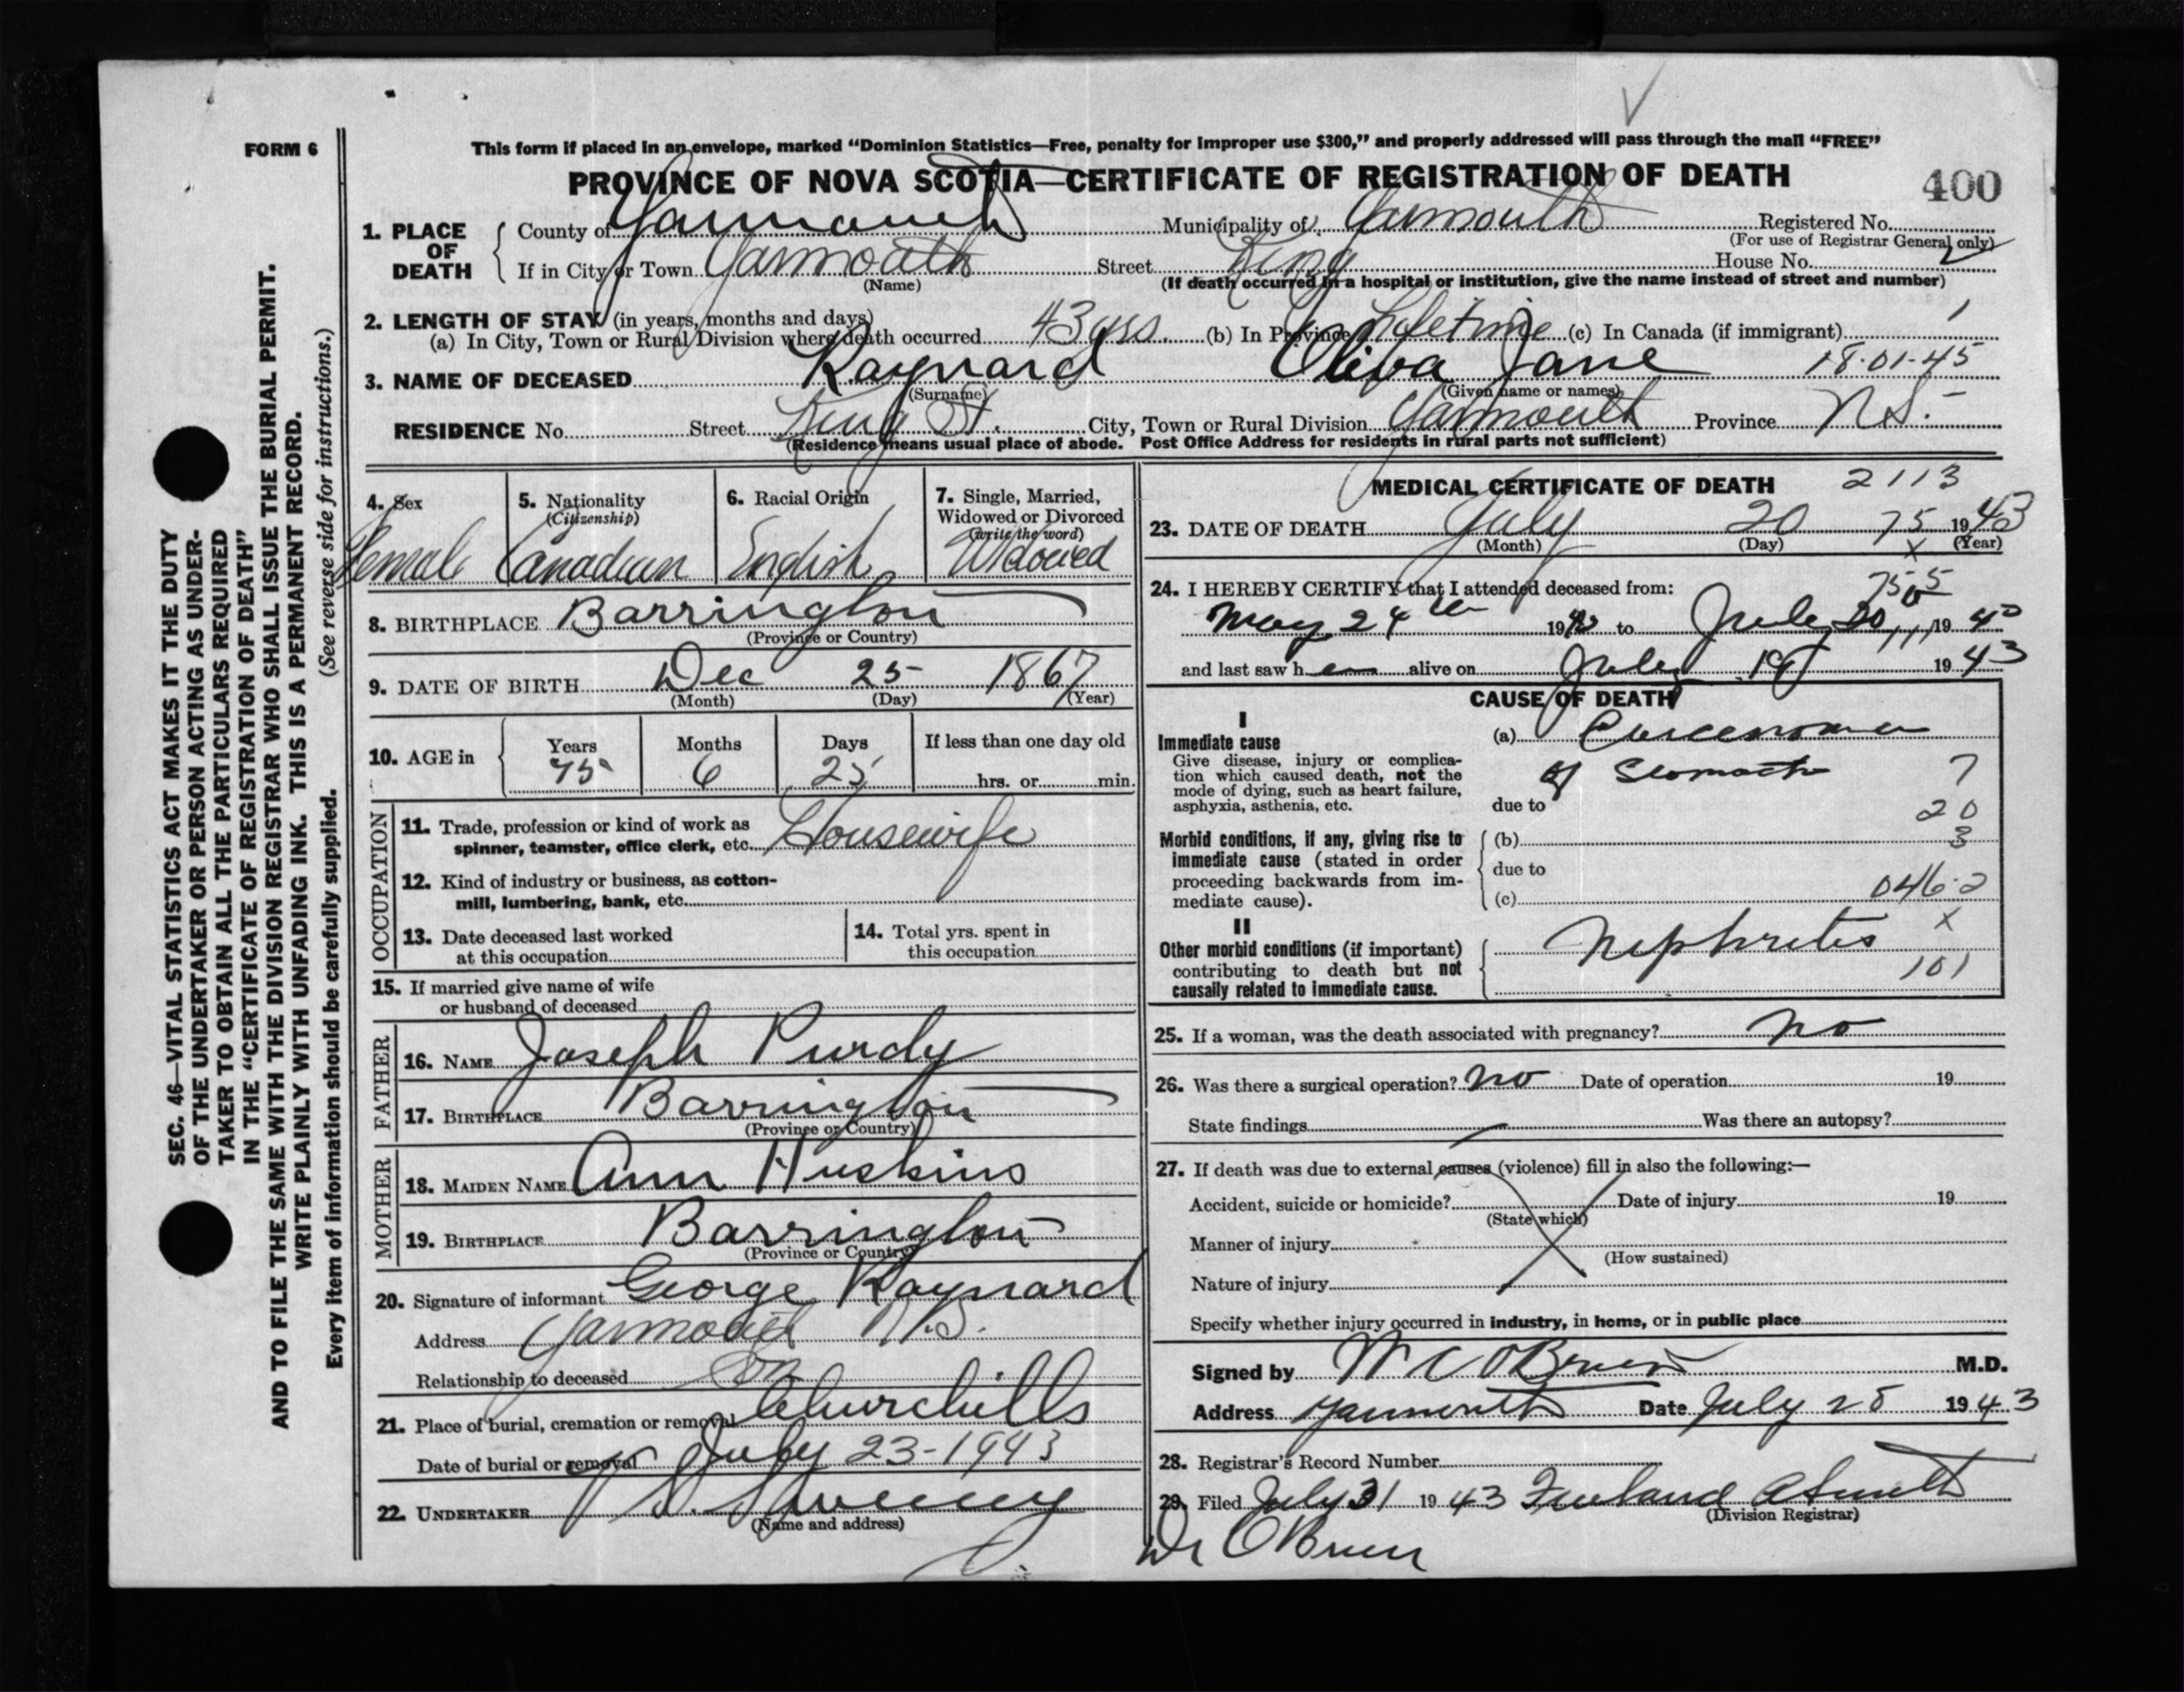 FORM 6
This form if placed in an envelope, marked “Dominion Statistics—Free, penalty for improper use $300,” and properly addressed will pass through the mail “FREE”
PROVINCE OF NOVA SCOTIA—CERTIFICATE OF REGISTRATION OF DEATH
400
1. PLACE OF DEATH
County of Yarmouth Municipality of Yarmouth Registered No.
(For use of Registrar General only)
If in City or Town Yarmouth Street King House No.
(Name)
(If death occurred in a hospital or institution, give the name instead of street and number)
2. LENGTH OF STAY (in years, months and days)
(a) In City, Town or Rural Division where death occurred 43 yrs. (b) In Province Lifetime (c) In Canada (if immigrant)
3. NAME OF DECEASED Raynard Oliva Jane 18-01-45
(Surname) (Given name or names)
RESIDENCE No. Street King St. City, Town or Rural Division Yarmouth Province N.S.
(Residence means usual place of abode. Post Office Address for residents in rural parts not sufficient)
4. Sex
Female
5. Nationality
(Citizenship)
Canadian
6. Racial Origin
English
7. Single, Married,
Widowed or Divorced
(write the word)
Widowed
8. BIRTHPLACE Barrington
(Province or Country)
9. DATE OF BIRTH Dec 25 1867
(Month) (Day) (Year)
10. AGE in
Years Months Days If less than one day old
75 6 25 hrs. or min.
OCCUPATION
11. Trade, profession or kind of work as
spinner, teamster, office clerk, etc. Housewife
12. Kind of industry or business, as cotton-
mill, lumbering, bank, etc.
13. Date deceased last worked
at this occupation
14. Total yrs. spent in
this occupation
15. If married give name of wife
or husband of deceased
FATHER
16. NAME Joseph Purdy
17. BIRTHPLACE Barrington
(Province or Country)
MOTHER
18. MAIDEN NAME Ann Huskins
19. BIRTHPLACE Barrington
(Province or Country)
20. Signature of informant George Raynard
Address Yarmouth N.S.
Relationship to deceased Son
21. Place of burial, cremation or removal Churchills
Date of burial or removal July 23-1943
22. UNDERTAKER V. S. Sweeny
(Name and address)
MEDICAL CERTIFICATE OF DEATH 2113
23. DATE OF DEATH July 20 75 1943
(Month) (Day) (Year)
x
24. I HEREBY CERTIFY that I attended deceased from:
May 24th 1943 to July 20 1943
and last saw her alive on July 19 1943
CAUSE OF DEATH
I
Immediate cause
Give disease, injury or complica-
tion which caused death, not the
mode of dying, such as heart failure,
asphyxia, asthenia, etc.
(a) Carcenoma
of Stomach 7
due to
20
Morbid conditions, if any, giving rise to
immediate cause (stated in order
proceeding backwards from im-
mediate cause).
(b) 3
due to
(c) 046.2
II
x
Other morbid conditions (if important)
contributing to death but not
causally related to immediate cause.
Nephritis
101
25. If a woman, was the death associated with pregnancy? no
26. Was there a surgical operation? no Date of operation 19
State findings Was there an autopsy?
27. If death was due to external causes (violence) fill in also the following:—
Accident, suicide or homicide? Date of injury 19
(State which)
Manner of injury
(How sustained)
Nature of injury
Specify whether injury occurred in industry, in home, or in public place
Signed by W C O'Brien M.D.
Address Yarmouth Date July 28 1943
28. Registrar's Record Number
29. Filed July 31 1943
(Division Registrar)
Dr O'Brien
SEC. 46—VITAL STATISTICS ACT MAKES IT THE DUTY
OF THE UNDERTAKER OR PERSON ACTING AS UNDER-
TAKER TO OBTAIN ALL THE PARTICULARS REQUIRED
IN THE “CERTIFICATE OF REGISTRATION OF DEATH”
AND TO FILE THE SAME WITH THE DIVISION REGISTRAR WHO SHALL ISSUE THE BURIAL PERMIT.
WRITE PLAINLY WITH UNFADING INK. THIS IS A PERMANENT RECORD.
Every item of information should be carefully supplied. (See reverse side for instructions.)